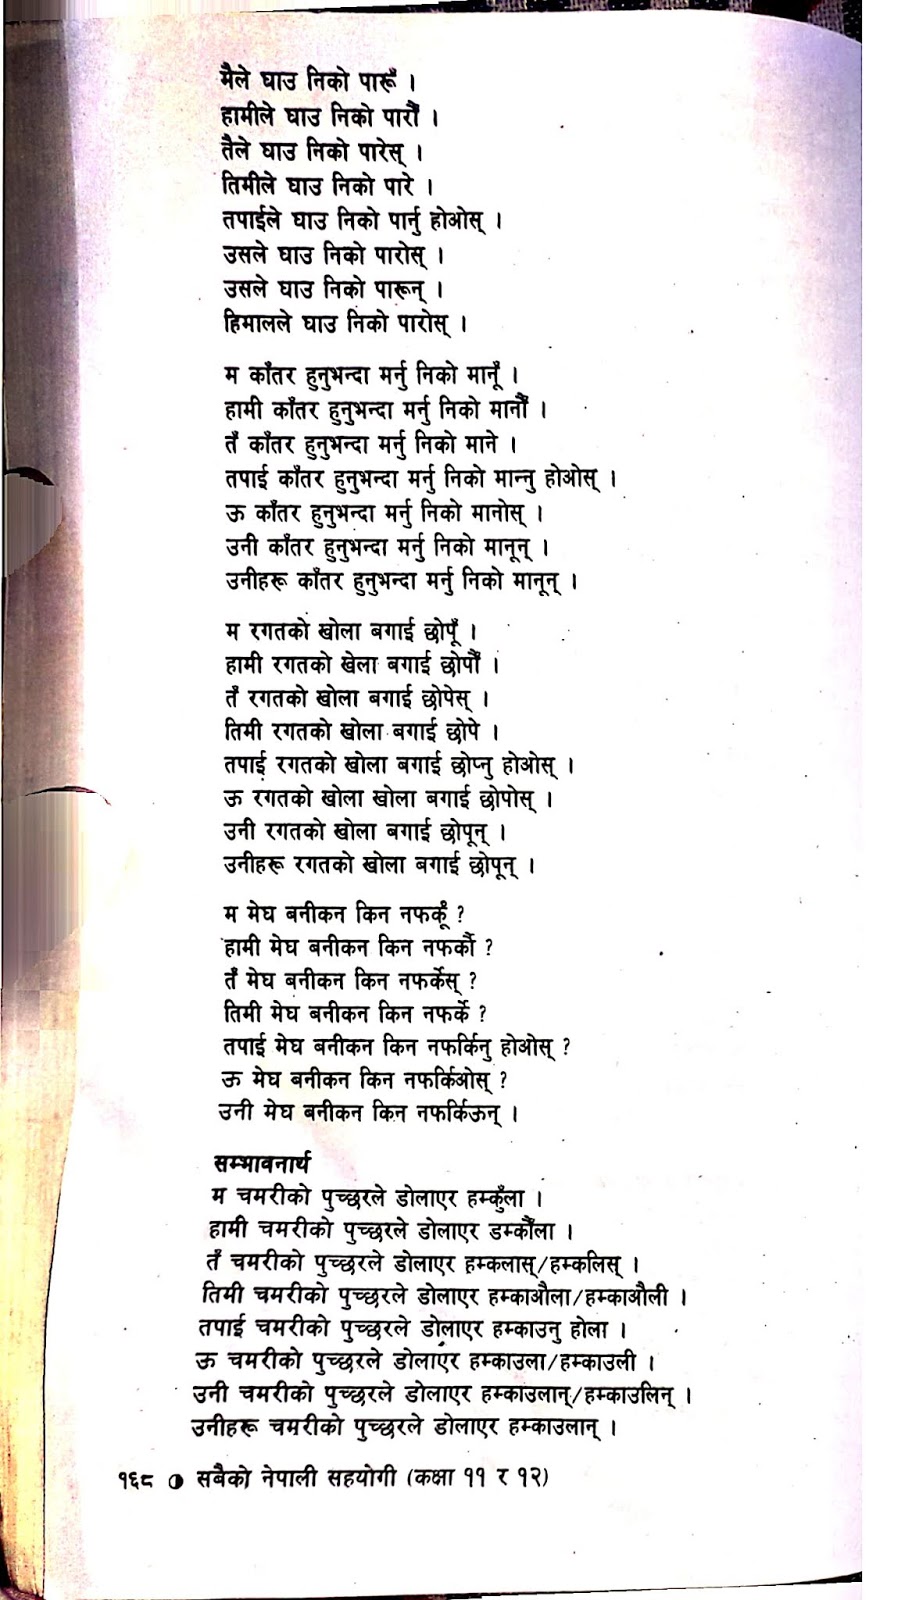 मैले घाउ निको पारूँ ।
हामीले घाउ निको पारौँ ।
तैले घाउ निको पारेस् ।
तिमीले घाउ निको पारे ।
तपाईले घाउ निको पार्नु होओस् ।
उसले घाउ निको पारोस् ।
उसले घाउ निको पारून् ।
हिमालले घाउ निको पारोस् ।
म काँतर हुनुभन्दा मर्नु निको मानूँ ।
हामी काँतर हुनुभन्दा मर्नु निको मानौँ ।
तँ काँतर हुनुभन्दा मर्नु निको माने ।
तपाई काँतर हुनुभन्दा मर्नु निको मान्नु होओस् ।
ऊ काँतर हुनुभन्दा मर्नु निको मानोस् ।
उनी काँतर हुनुभन्दा मर्नु निको मानून् ।
उनीहरू काँतर हुनुभन्दा मर्नु निको मानून् ।
म रगतको खोला बगाई छोपूँ ।
हामी रगतको खेला बगाई छोपौँ ।
तँ रगतको खोला बगाई छोपेस् ।
तिमी रगतको खोला बगाई छोपे ।
तपाई रगतको खोला बगाई छोप्नु होओस् ।
ऊ रगतको खोला खोला बगाई छोपोस् ।
उनी रगतको खोला बगाई छोपून् ।
उनीहरू रगतको खोला बगाई छोपून् ।
म मेघ बनीकन किन नफर्कूँ ?
हामी मेघ बनीकन किन नफर्कौ ?
तँ मेघ बनीकन किन नफर्केस् ?
तिमी मेघ बनीकन किन नफर्के ?
तपाई मेघ बनीकन किन नफर्किनु होओस् ?
ऊ मेघ बनीकन किन नफर्किओस् ?
उनी मेघ बनीकन किन नफर्किऊन् ।
सम्भावनार्थ
म चमरीको पुच्छरले डोलाएर हम्कुँला ।
हामी चमरीको पुच्छरले डोलाएर डम्कौँला ।
तँ चमरीको पुच्छरले डोलाएर हम्कलास्/हम्कलिस् ।
तिमी चमरीको पुच्छरले डोलाएर हम्काऔला/हम्काऔली ।
तपाई चमरीको पुच्छरले डोलाएर हम्काउनु होला ।
ऊ चमरीको पुच्छरले डोलाएर हम्काउला/हम्काउली ।
उनी चमरीको पुच्छरले डोलाएर हम्काउलान्/हम्काउलिन् ।
उनीहरू चमरीको पुच्छरले डोलाएर हम्काउलान् ।
१६८ ◑ सबैको नेपाली सहयोगी (कक्षा ११ र १२)